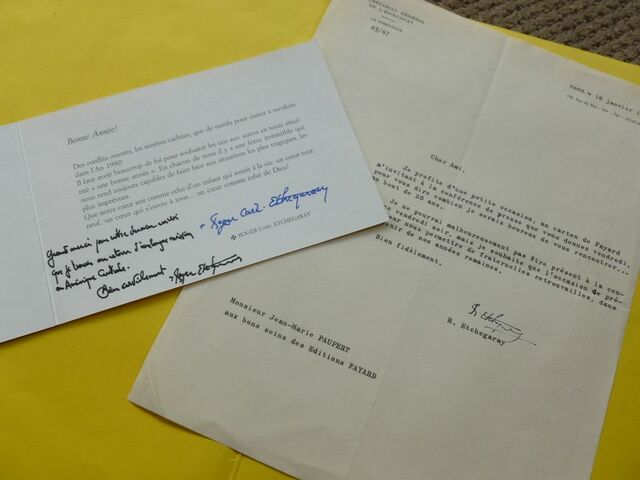 Bonne Année!
Des conflits ouverts, les misères cachées, que de motifs pour entrer à reculons
dans l'An 1990!
Il faut avoir beaucoup de foi pour souhaiter les uns aux autres en toute sincé-
rité « une bonne année ». En chacun de nous il y a une force irrésistible qui
nous rend toujours capables de faire face aux situations les plus tragiques, les
plus imprévues.
Que notre cœur soit comme celui d'un enfant qui sourit à la vie: un cœur tout
neuf, un cœur qui s'ouvre à tout... un cœur comme celui de Dieu!
+ Roger Card. Etchegaray
✠ ROGER Card. ETCHEGARAY
Grand merci pour votre
que je trouve au retour d'une mission
en Amérique Centrale.
Bien cordialement + Roger Etchegaray
SECRÉTARIAT GÉNÉRAL
DE L'ÉPISCOPAT
LE DIRECTEUR
PARIS, le 16 janvier
Cher Ami,
Je profite d'une petite occasion, un carton de Fayard
m'invitant à la conférence de presse que vous donnez vendredi,
pour vous dire combien je serais heureux de vous rencontrer...
au bout de 20 ans.
Je ne pourrai malheureusement pas être présent à la con-
vendredi soir, mais je souhaite que l'occasion de pré-
nous permettre de fraternelles retrouvailles, dans
de nos années romaines.
Bien fidèlement.
R. Etchegaray
R. Etchegaray
Monsieur Jean-Marie PAUPERT
aux bons soins des Editions FAYARD